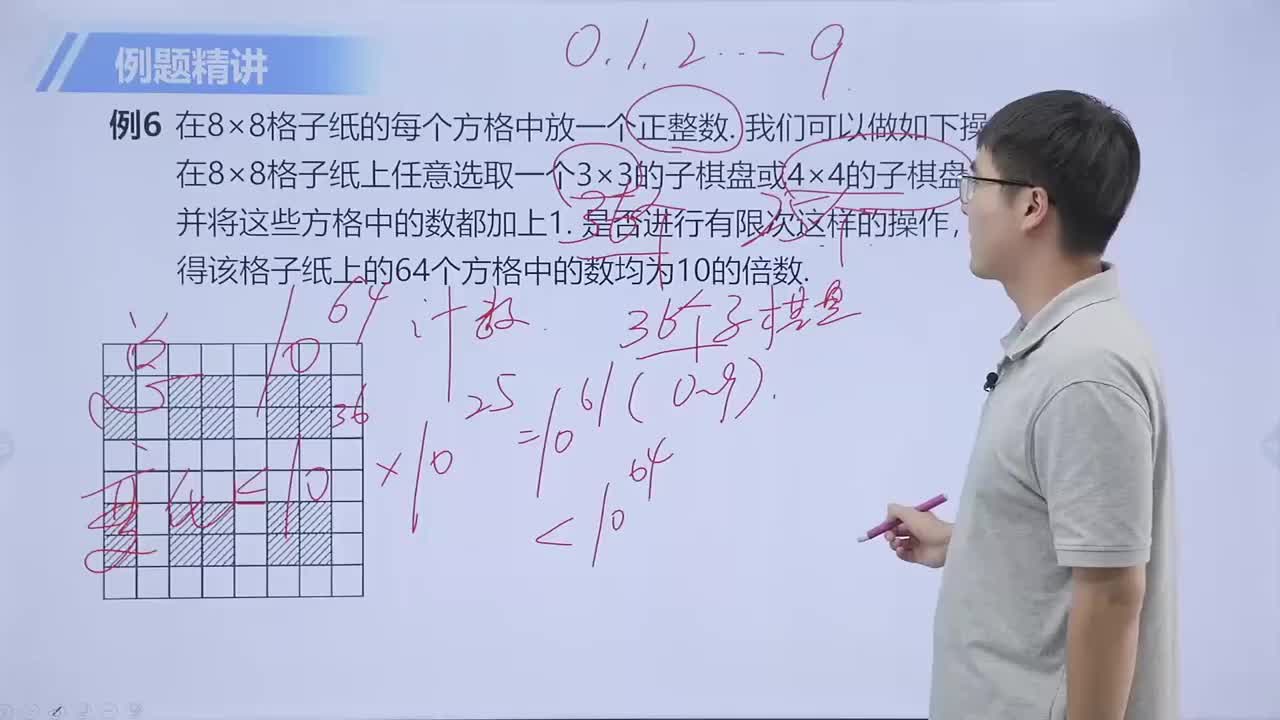 例题精讲
0.1.2……9
例6 在8×8格子纸的每个方格中放一个正整数. 我们可以做如下操
在8×8格子纸上任意选取一个3×3的子棋盘或4×4的子棋盘
并将这些方格中的数都加上1. 是否进行有限次这样的操作,
得该格子纸上的64个方格中的数均为10的倍数.
36个 25个
总 10^64 计数. 36个子棋盘
(0~9).
变化≤10^36×10^25=10^61
<10^64